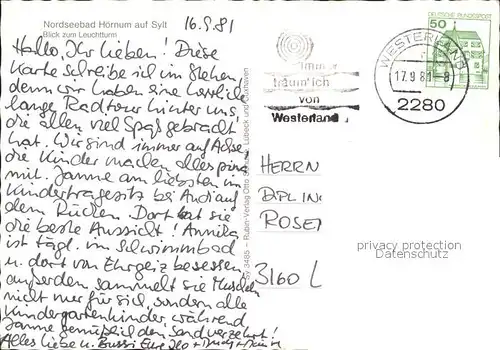 Nordseebad Hörnum auf Sylt
Blick zum Leuchtturm
16.9.81
Hallo, Ihr Lieben! Diese
Karte schreibe ich im Stehen,
denn wir haben eine herrliche
lange Radtour hinter uns,
die allen viel Spaß gebracht
hat. Wir sind immer auf Achse
die Kinder machen alles prima
mit. Janne am liebsten im
Kindertragesitz bei Andi auf
dem Rücken. Dort hat sie
die beste Aussicht! Annika
ist tägl. im Schwimmbad
u. dort vom Ehrgeiz besessen
außerdem sammelt sie Muscheln
nicht nur für sich, sondern alle
Kindergartenkinder, während
Janne genüßlich den Sand verzehrt!
Alles Liebe u. Bussi Eure
Sy 3485 – Rubin-Verlag Otto Lübeck und Cuxhaven
Immer
träum' ich
von
Westerland
WESTERLAND
17.9.81-8
2280
DEUTSCHE BUNDESPOST
50
HERRN
DIPL ING
ROSE
3160 L
privacy protection
Datenschutz